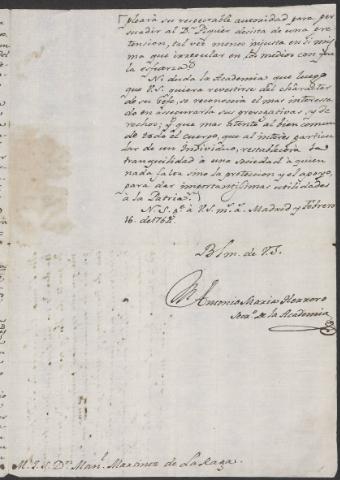 pleará su respetable autoridad para per
suadir al Dr. Piquer desista de una pre
tension, tal vez menos injusta en si mis
ma que irregular en los medios con que
la esfuerza.
No duda la Academia que luego
que V.S. quiera revestirse del charácter
de su Gefe, se reconocerá el mas interesa
do en asegurarla sus prerogativas, y de
rechos; y que mas atento al bien comun
de todo el cuerpo, que al interés particu
lar de un Individuo, restablecerá la
tranquilidad á una sociedad á quien
nada falta sino la proteccion y el apoyo,
para dar importantisimas utilidades
á la Patria.
N. S. gde. á V.S. ms. as. Madrid y Febrero
16. de 1768.
Blm. de V.S.
Antonio Maria Herrero
Secro. de la Academia
Mui I. S. Dn. Manl. Martinez de La Raga.